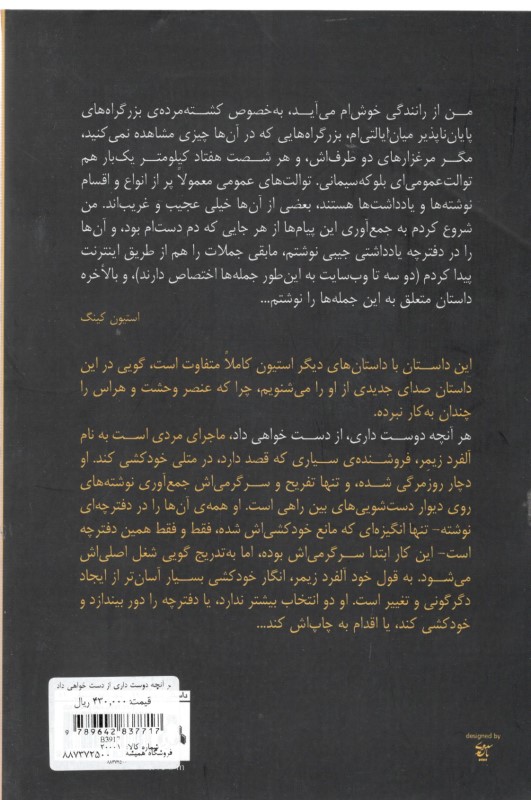 من از رانندگی خوش‌ام می‌آید، به‌خصوص کشته‌مرده‌ی بزرگراه‌های
پایان‌ناپذیر میان‌ایالتی‌ام، بزرگراه‌هایی که در آن‌ها چیزی مشاهده نمی‌کنید،
مگر مرغزارهای دو طرف‌اش، و هر شصت هفتاد کیلومتر یک‌بار هم
توالت‌عمومی‌ای بلوکه‌سیمانی. توالت‌های عمومی معمولاً پر از انواع و اقسام
نوشته‌ها و یادداشت‌ها هستند، بعضی از آن‌ها خیلی عجیب و غریب‌اند. من
شروع کردم به جمع‌آوری این پیام‌ها از هر جایی که دم دست‌ام بود، و آن‌ها
را در دفترچه یادداشتی جیبی نوشتم، مابقی جملات را هم از طریق اینترنت
پیدا کردم (دو سه تا وب‌سایت به این‌طور جمله‌ها اختصاص دارند)، و بالأخره
داستان متعلق به این جمله‌ها را نوشتم...
استیون کینگ
این داستان با داستان‌های دیگر استیون کاملاً متفاوت است، گویی در این
داستان صدای جدیدی از او را می‌شنویم، چرا که عنصر وحشت و هراس را
چندان به‌کار نبرده.
هر آنچه دوست داری، از دست خواهی داد، ماجرای مردی است به نام
آلفرد زیمر، فروشنده‌ی سیاری که قصد دارد، در متلی خودکشی کند. او
دچار روزمرگی شده، و تنها تفریح و سرگرمی‌اش جمع‌آوری نوشته‌های
روی دیوار دست‌شویی‌های بین راهی است. او همه‌ی آن‌ها را در دفترچه‌ای
نوشته- تنها انگیزه‌ای که مانع خودکشی‌اش شده، فقط و فقط همین دفترچه
است- این کار ابتدا سرگرمی‌اش بوده، اما به‌تدریج گویی شغل اصلی‌اش
می‌شود. به قول خود آلفرد زیمر، انگار خودکشی بسیار آسان‌تر از ایجاد
دگرگونی و تغییر است. او دو انتخاب بیشتر ندارد، یا دفترچه را دور بیندازد و
خودکشی کند، یا اقدام به چاپ‌اش کند...
ر آنچه دوست داری از دست خواهی داد
قیمت: ۴۳۰,۰۰۰ ریال
9 789642 837717
شماره کالا: ۲۰۰۰۱
فروشگاه همیشه ۸۸۷۳۷۲۵۰۰
designed by